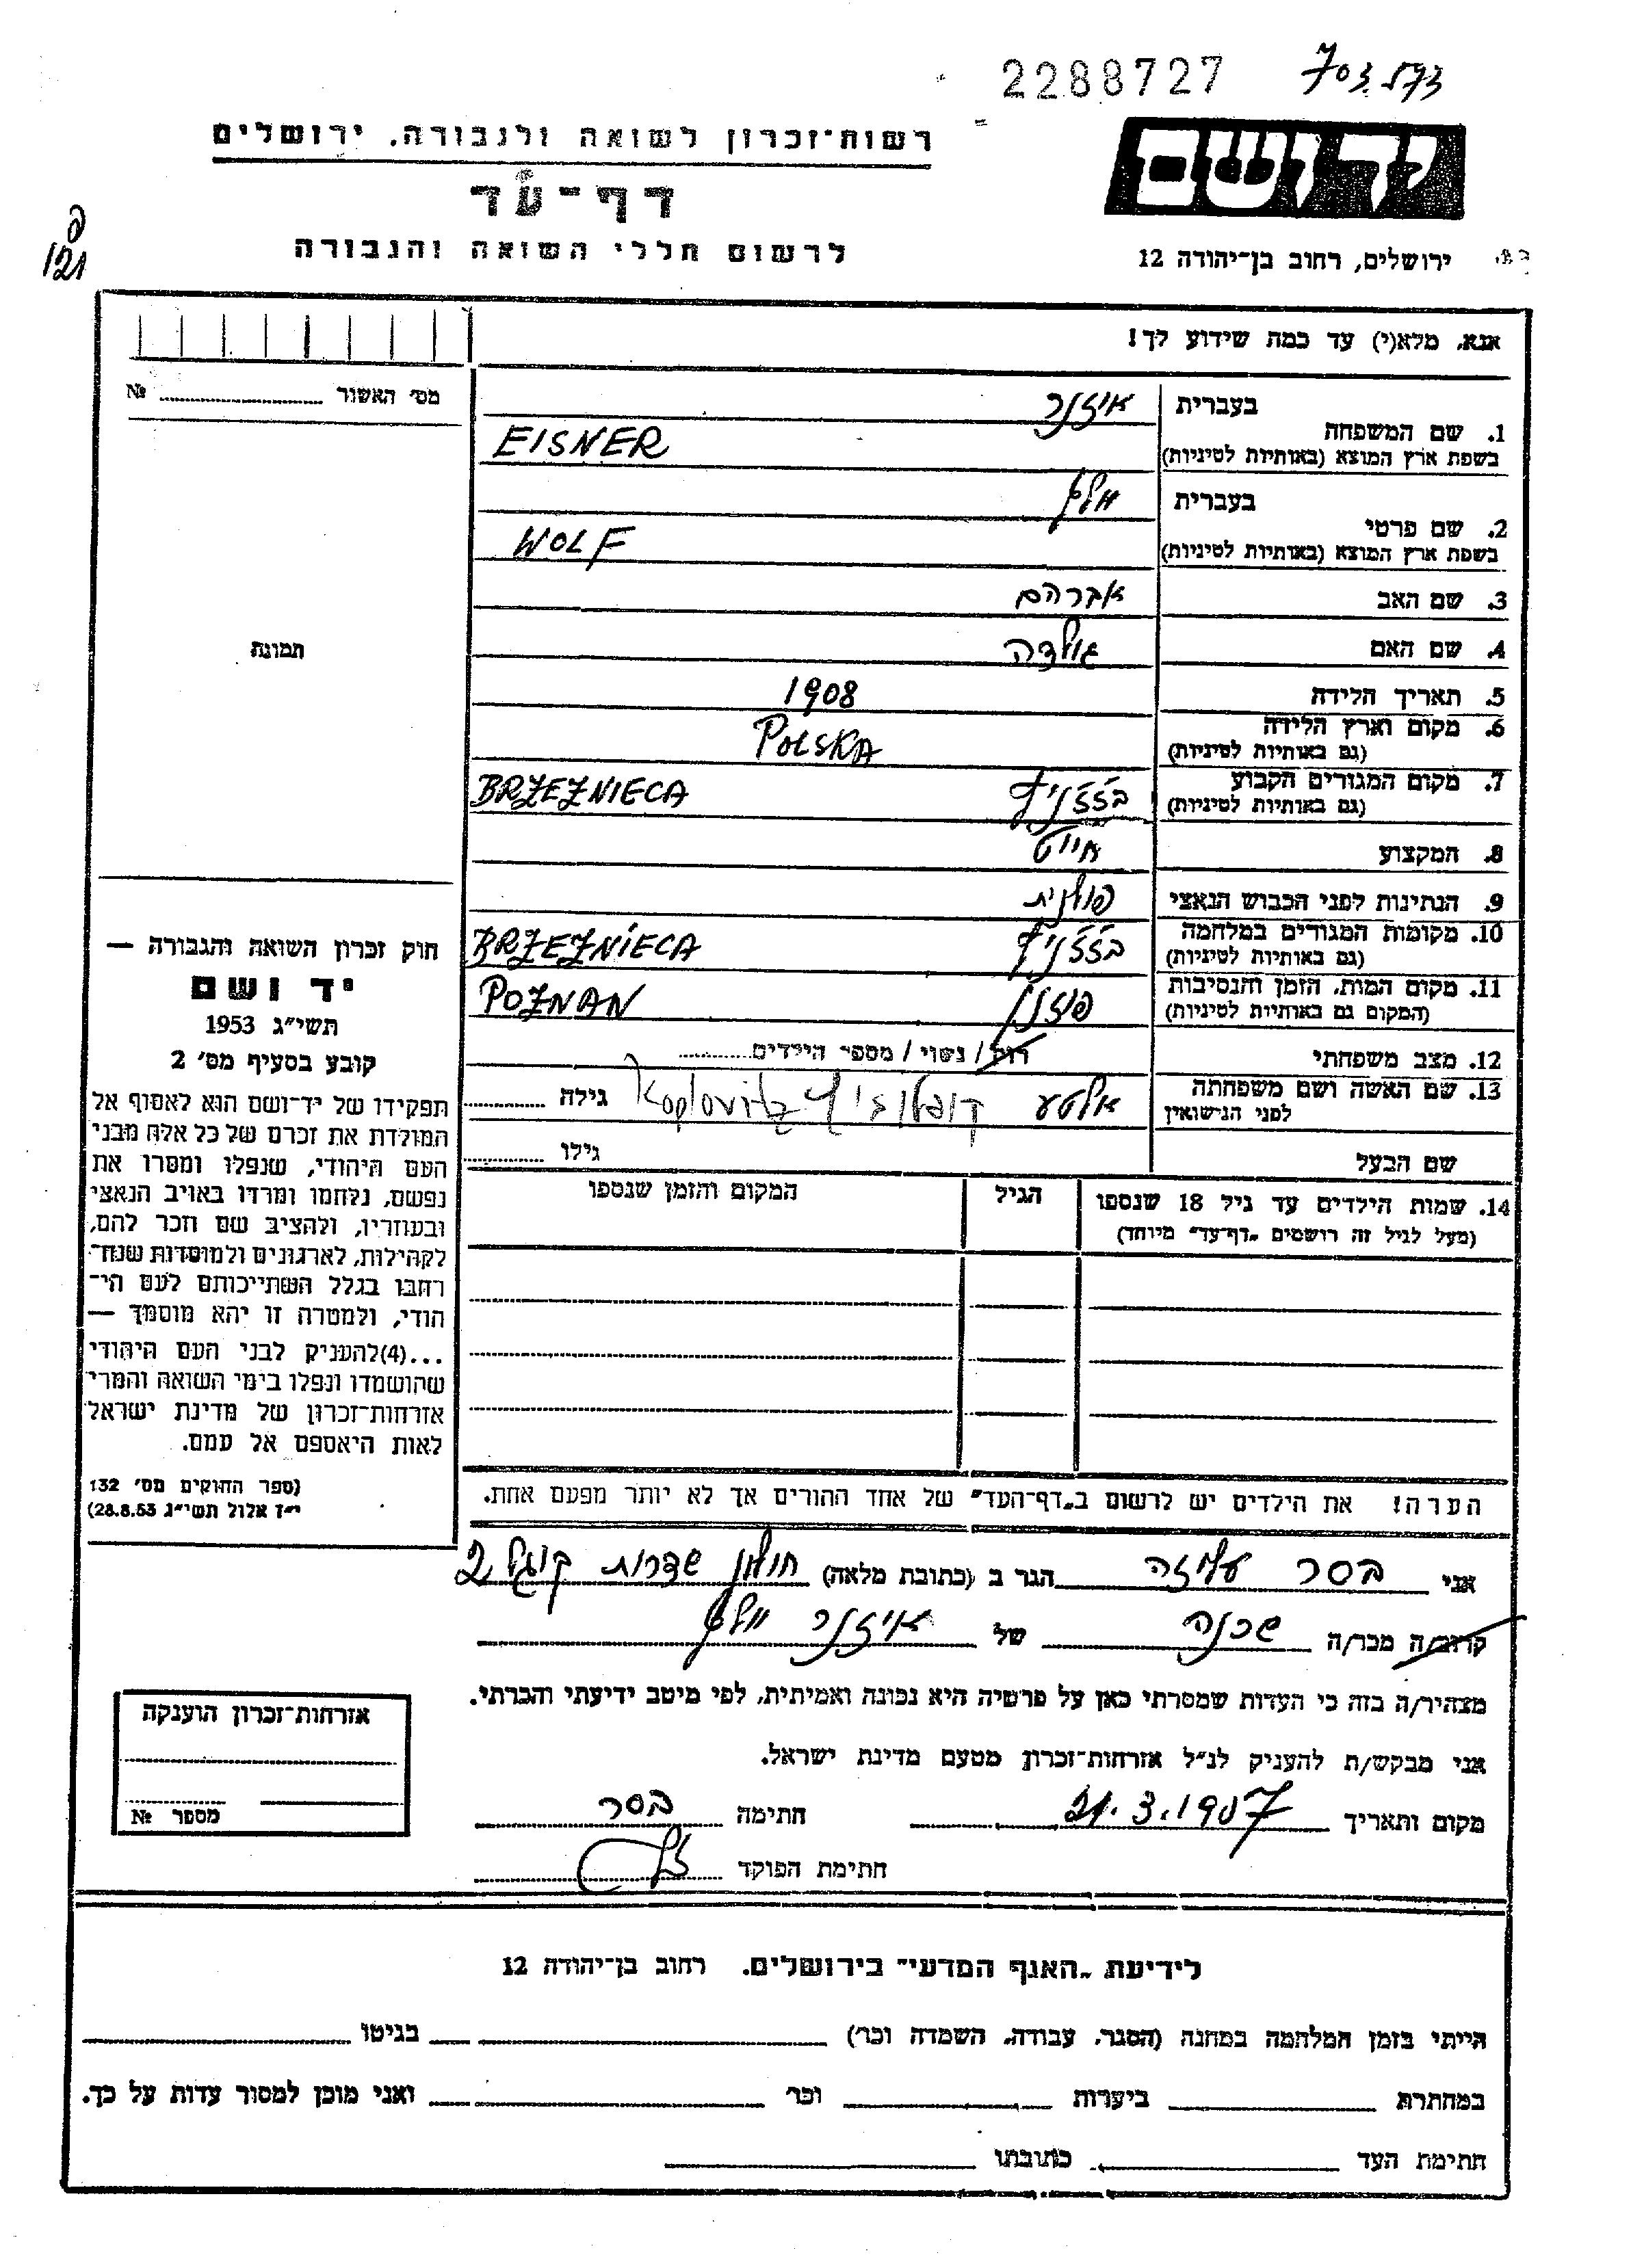 2288727 703.573
רשות־זכרון לשואה ולגבורה. ירושלים
יד ושם
דף־עד
לרשום חללי השואה והגבורה
ירושלים, רחוב בן־יהודה 12
121
אנא, מלא(י) עד כמה שידוע לך!
מס׳ האשור № 
1. שם המשפחה בעברית איזנר
בשפת ארץ המוצא (באותיות לטיניות) EISNER
2. שם פרטי בעברית וולף
בשפת ארץ המוצא (באותיות לטיניות) WOLF
3. שם האב אברהם
4. שם האם גולדה
תמונה
5. תאריך הלידה 1908
6. מקום וארץ הלידה
(גם באותיות לטיניות) POLSKA
7. מקום המגורים הקבוע
(גם באותיות לטיניות) BRZEZNIECA
8. המקצוע חייט
9. הנתינות לפני הכבוש הנאצי פולנית
10. מקומות המגורים במלחמה
(גם באותיות לטיניות) BRZEZNIECA
11. מקום המות, הזמן והנסיבות
(המקום גם באותיות לטיניות) פוזנן POZNAN
12. מצב משפחתי רווק / נשוי / מספר הילדים
13. שם האשה ושם משפחתה
לפני הנישואין אלטע קופלוביץ Koplovitz גילה
שם הבעל גילו
14. שמות הילדים עד גיל 18 שנספו הגיל המקום והזמן שנספו
(מעל לגיל זה רושמים „דף־עד״ מיוחד)
חוק זכרון השואה והגבורה —
יד ושם
תשי״ג 1953
קובע בסעיף מס׳ 2
תפקידו של יד־ושם הוא לאסוף אל
המולדת את זכרם של כל אלה מבני
העם היהודי, שנפלו ומסרו את
נפשם, נלחמו ומרדו באויב הנאצי
ובעוזריו, ולהציב שם וזכר להם,
לקהילות, לארגונים ולמוסדות שנח־
רבו בגלל השתייכותם לעם הי־
הודי, ולמטרה זו יהא מוסמך —
...(4) להעניק לבני העם היהודי
שהושמדו ונפלו בימי השואה והמרי
אזרחות־זכרון של מדינת ישראל
לאות היאספם אל עמם.
(ספר החוקים מס׳ 132
י״ז אלול תשי״ג 28.8.53)
הערה! את הילדים יש לרשום ב„דף־העד״ של אחד ההורים אך לא יותר מפעם אחת.
אני בסר עליזה הגר ב (כתובת מלאה) חולון שדרות קוגל 2
קרוב/ה מכר/ה שכנה של איזנר וולף
מצהיר/ה בזה כי העדות שמסרתי כאן על פרטיה היא נכונה ואמיתית, לפי מיטב ידיעתי והכרתי.
אני מבקש/ת להעניק לנ״ל אזרחות־זכרון מטעם מדינת ישראל.
מקום ותאריך 21.3.1957 חתימה בסר
חתימת הפוקד
אזרחות־זכרון הוענקה
מספר №
לידיעת „האגף המדעי״ בירושלים. רחוב בן־יהודה 12
הייתי בזמן המלחמה במחנה (הסגר, עבודה, השמדה וכו׳) בגיטו
במחתרת ביערות וכו׳ ואני מוכן למסור עדות על כך.
חתימת העד כתובתו